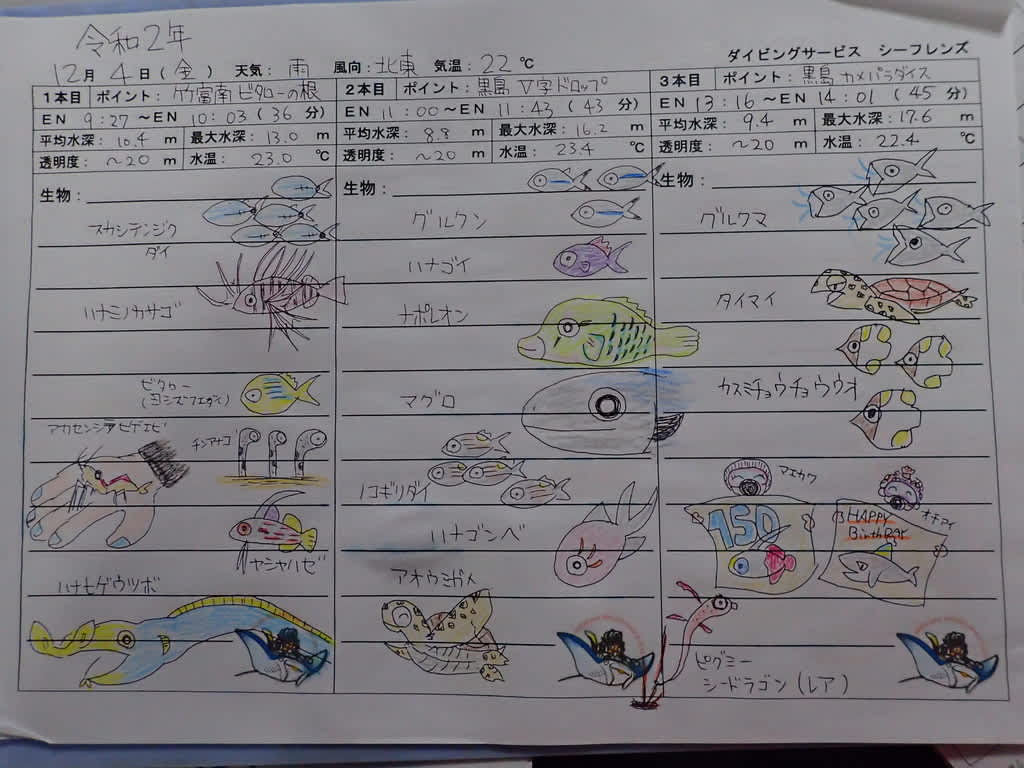 令和2年
ダイビングサービス シーフレンズ
12月 4日(金) 天気: 雨 風向: 北東 気温: 22℃
1本目 ポイント: 竹富南ビタローの根
EN 9:27〜EN 10:03(36分)
平均水深: 10.4 m 最大水深: 13.0 m
透明度: 〜20 m 水温: 23.0 ℃
生物:
スカシテンジク
ダイ
ハナミノカサゴ
ビタロー
(ヨスジフエダイ)
アカセンシテヒゲエビ
チンアナゴ
ヤシャハゼ
ハナヒゲウツボ
2本目 ポイント: 黒島 V字ドロップ
EN 11:00〜EN 11:43(43分)
平均水深: 8.8 m 最大水深: 16.2 m
透明度: 〜20 m 水温: 23.4 ℃
生物:
グルクン
ハナゴイ
ナポレオン
マグロ
ノコギリダイ
ハナゴンベ
アオウミガメ
3本目 ポイント: 黒島 カメパラダイス
EN 13:16〜EN 14:01(45分)
平均水深: 9.4 m 最大水深: 17.6 m
透明度: 〜20 m 水温: 22.4 ℃
生物:
グルクマ
タイマイ
カスミチョウチョウウオ
マエカワ
オチアイ
150
HAPPY
BirthDAY
ピグミー
シードラゴン(レア)